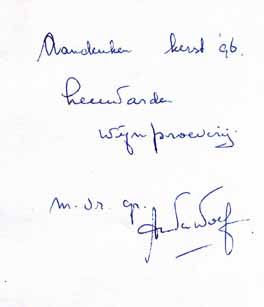 Aandenken kerst '96.
Leeuwarden
wijnproeverij.
m. vr. gr.